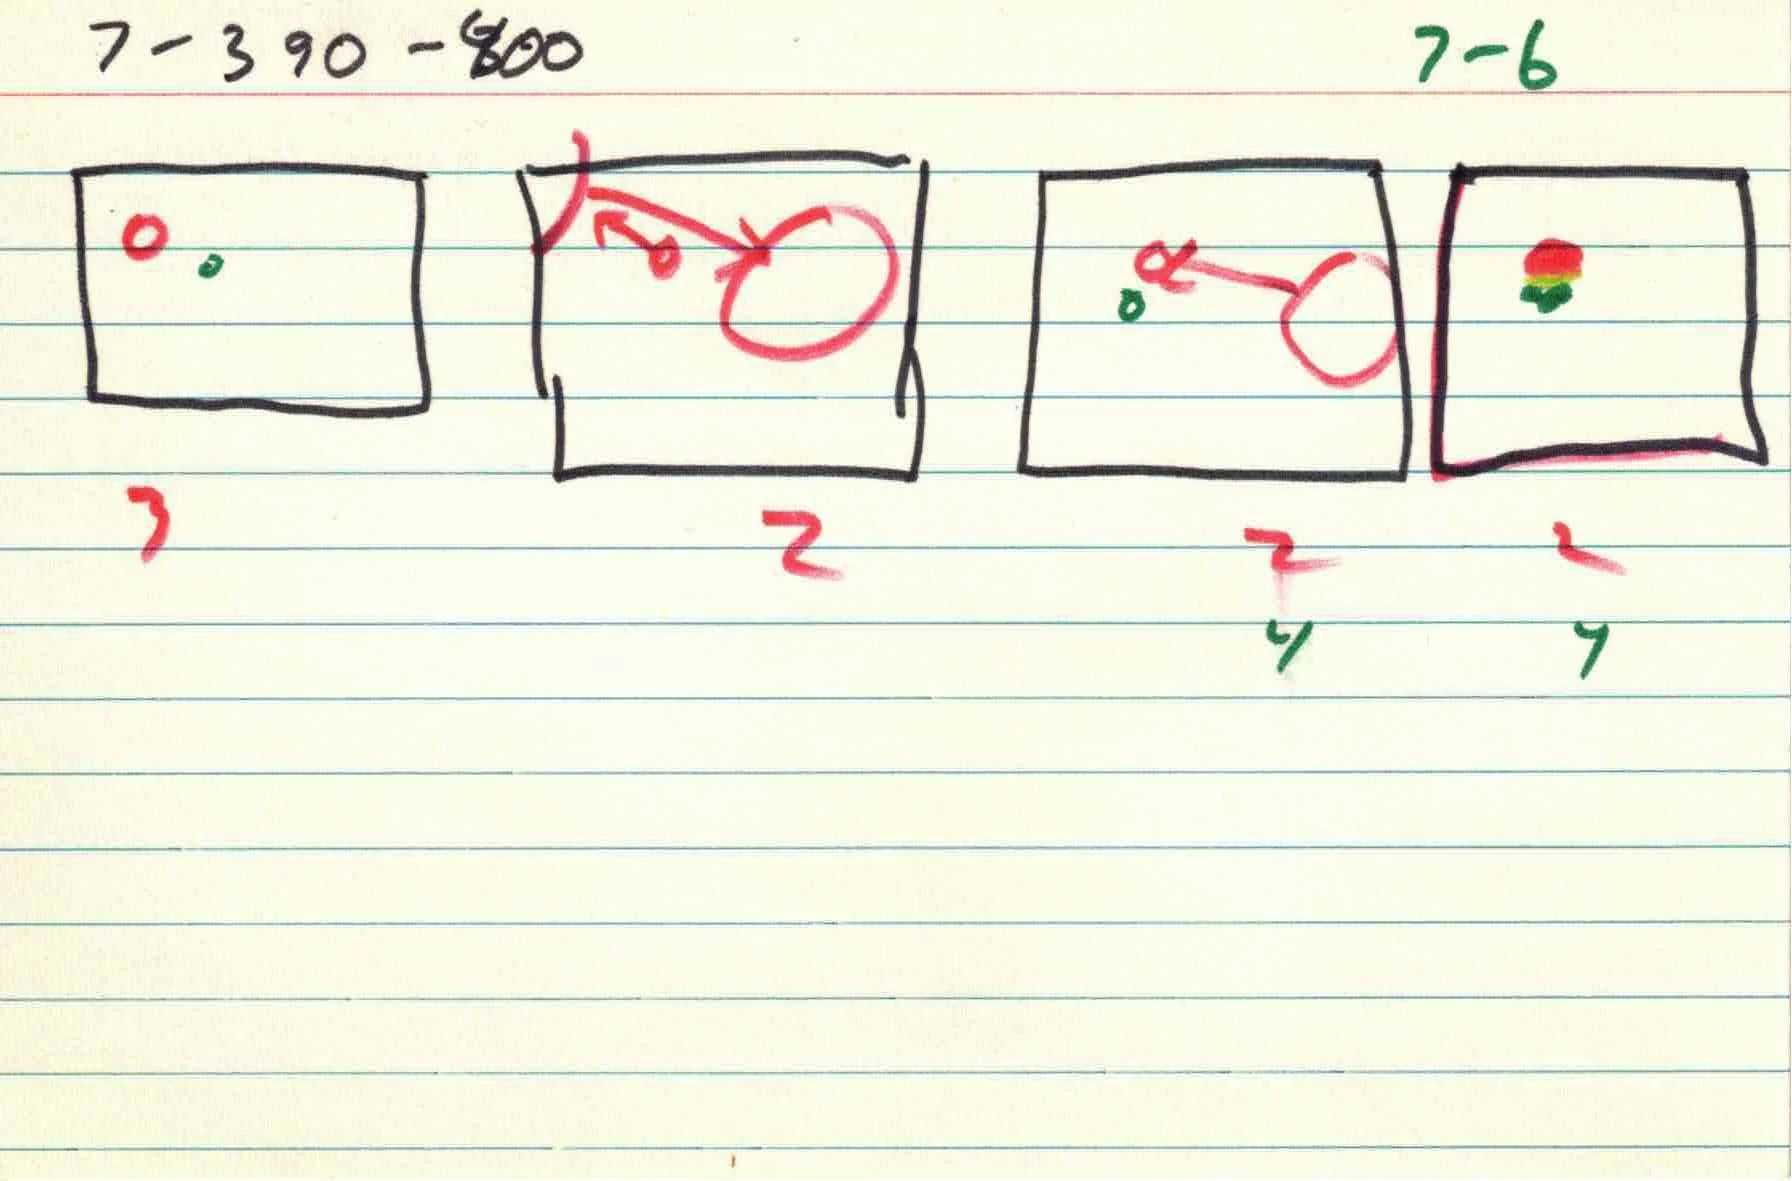 7-390-800 7-6
3 2 2 2
4 4